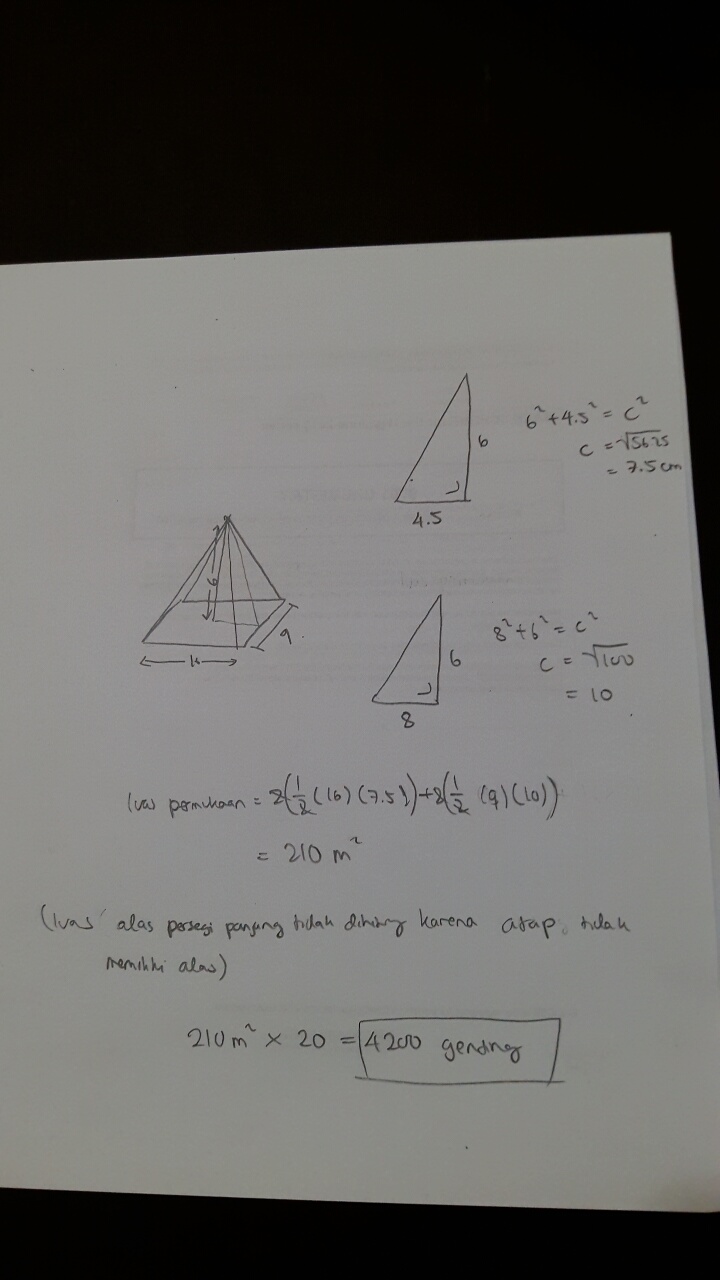 6² + 4.5² = c²
c = √5625
= 7.5 cm
6
4.5
6
16
9
8² + 6² = c²
c = √100
= 10
6
8
luas permukaan = 2(1/2 (16) (7.5)) + 2(1/2 (9) (10))
= 210 m²
(luas alas persegi panjang tidak dihitung karena atap tidak
memiliki alas)
210 m² × 20 = 4200 genting